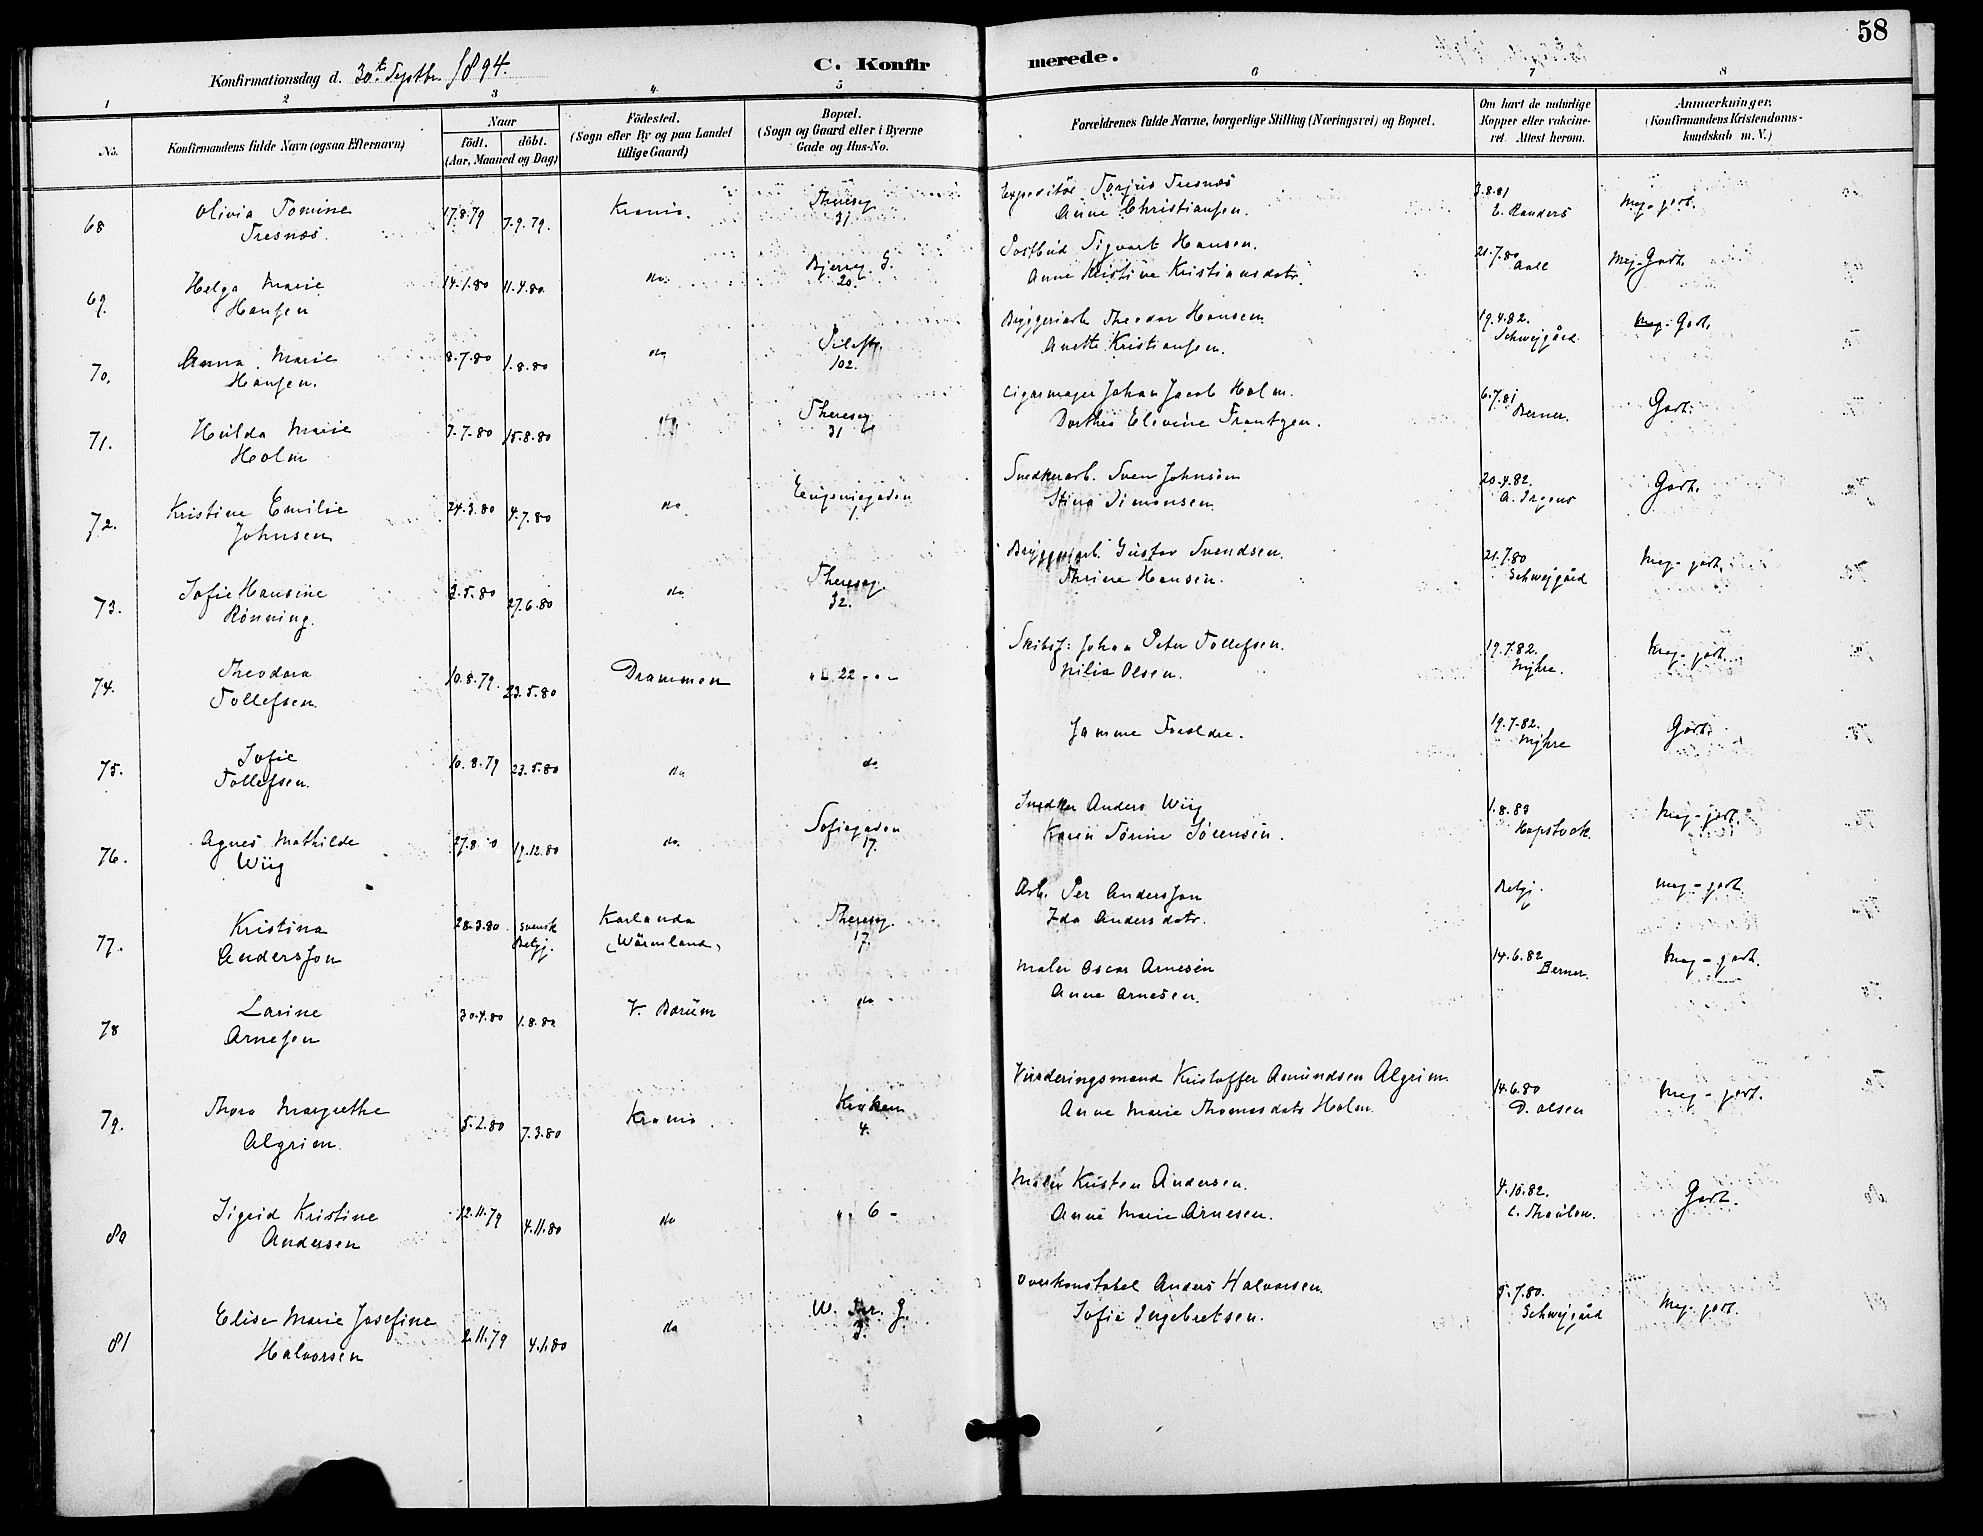 58
Konfirmationsdag d. 30te Septbr. 1894.
C. Konfir merede.
1 2 3 4. 5 6 7 8
No. Konfirmandens fulde Navn (ogsaa Efternavn)
Naar
födt. döbt.
(Aar, Maaned og Dag)
Födested.
(Sogn eller By og paa Landet
tillige Gaard)
Bopæl.
(Sogn og Gaard eller i Byerne
Gade og Hus-No.
Forældrenes fulde Navne, borgerlige Stilling (Næringsvei) og Bopæl.
Om havt de naturlige
Kopper eller vakcine-
ret. Attest herom.
Anmærkninger.
(Konfirmandens Kristendoms-
kundskab m. V.)
68 Olivia Tomine 17.8.79 7.9.79. Krania. Thereseg. Expeditör Torjus Tresnæs 3.8.81 Meg. godt.
Tresnæs. 31. Anne Christiansen. E. Randers
69. Helga Marie 14.1.80 11.4.80. do. Bjerreg. G. Postbud Sigvart Hansen. 21.7.80 Meg. Godt.
Hansen 20. Anne Kristine Kristiansdatr. Aall
70. Anna Marie 8.7.80 1.8.80 do Pilestr. Bryggeriarb. Theodor Hansen. 19.4.82. Godt.
Hansen. 102. Anette Kristiansen. Schwejgård
71. Hulda Marie 7.7.80 15.8.80 do Thereseg. Cigarmager Johan Jacob Holm. 6.7.81 Godt.
Holm 31 Dorthea Elevine Frantzen. Berner.
72. Kristine Emilie 24.3.80 4.7.80 do Eugeniegaden Snedkerarb. Sven Johnson 20.4.82. Godt.
Johnsen 1. Stina Simonsen.
73. Sofie Hansine 3.5.80 27.6.80 do Thereseg. Bryggeriarb. Gustav Svendsen. 21.7.80 Meg. godt.
Rønning. 32. Thrine Hansen. Schwejgård
74. Theodora 10.8.79. 23.5.80 Drammen " 22 - " - Skibsf: Johan Peter Tollefsen. 19.7.82. Meg. godt.
Tollefsen. Nilia Olsen. Myhre.
75. Sofie 10.8.79 23.5.80 do do Samme Foreldre. 19.7.82. Godt.
Tollefsen. Myhre
76. Agnes Mathilde 27.8.80 19.12.80 do. Sofiegaden Snedker Anders Wiig 1.8.83 Meg. godt.
Wiig 17. Karen Sørine Sørensen. Kopstock.
77. Kristina 28.3.80 svensk Karlanda Thereseg. Arb. Per Andersson Betyj. Meg - godt.
Andersson Betyj. (Wärmland) 17. Ida Andersdatr.
78 Larine 30.4.80 1.8.80 V. Bærum do Maler Oscar Arnesen 14.6.82 Meg - godt.
Arnesen Anne Arnesen. Berner.
79. Thora Margrethe 5.2.80 7.3.80 Krania. Kirkem Vurderingsmand Kristoffer Amundsen Algrim. 14.6.80 Meg - godt.
Algrim. 4. Anne Marie Thomasdatr Holm. D. Olsen
80 Sigrid Kristine 12.11.79 4.11.80 do " 6 - Maler Kristen Andersen. 4.10.82. Godt.
Andersen Anne Marie Arnesen. C. Thaulow.
81 Elise Marie Josefine 2.11.79 4.1.80 do Overkonstabel Anders Halvorsen. 5.7.80. Meg. godt.
Halvorsen 3. Sofie Ingebretsen. Schwejgård